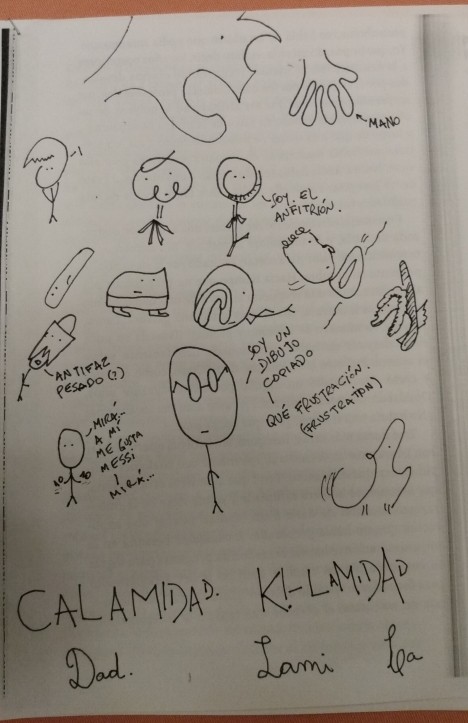 MANO
SOY. EL
ANFITRIÓN.
ANTIFAZ
PESADO (?)
SOY UN
DIBUJO
COPIADO
¡
QUÉ FRUSTRACIÓN.
(FRUSTRATION)
MIRÁ,..
A MÍ
ME GUSTA
MESSI
¡
MIRÁ...
CALAMIDAD. K!-LAMIDAD
Dad. Lami Ca